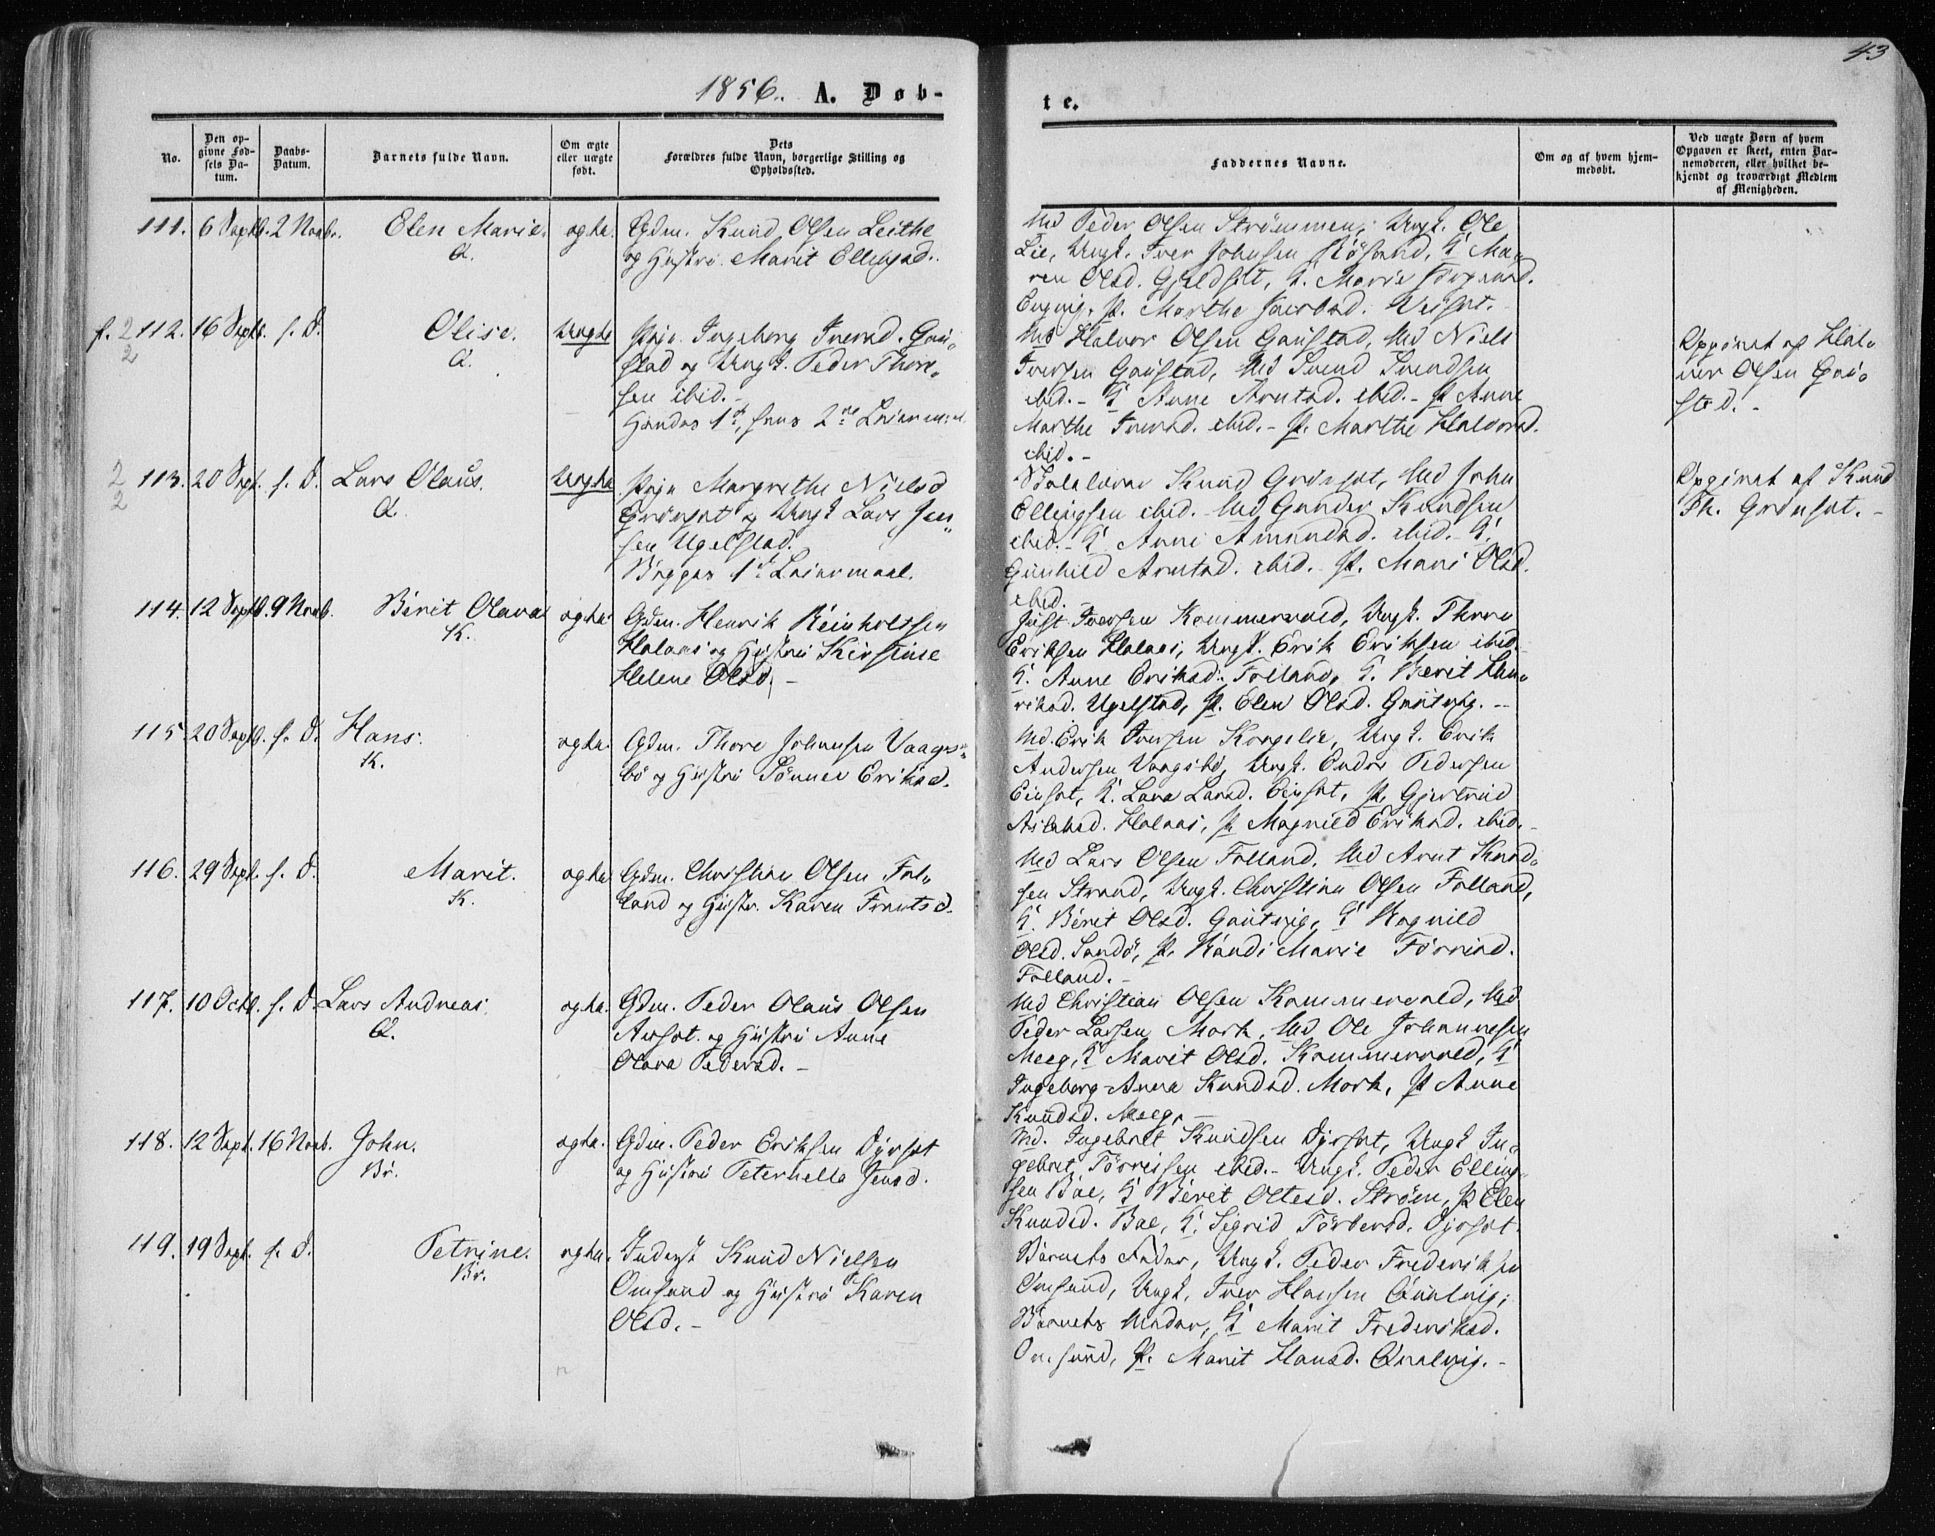 43
1856. A. Døb-
te.
No.
Den op-
givne Fød-
sels Da-
tum.
Daabs-
Datum.
Barnets fulde Navn.
Om ægte
eller uægte
født.
Dets
Forældres fulde Navn, borgerlige Stilling og
Opholdssted.
Faddernes Navne.
Om og af hvem hjem-
medøbt.
Ved uægte Børn af hvem
Opgaven er skeet, enten Bar-
nemoderen, eller hvilket be-
kjendt og troværdigt Medlem
af Menigheden.
111. 6 Septb. 2 Novb. Elen Marie. ægte. Gdm. Knud Olsen Leithe
Q.
og Hustru Marit Ellingsd.
Peder Olsen Strømmen, Ungk. Ole
Lie, Ungk. Iver Johnsen Røsand, G. Ma-
ren Olsd. Gjeldset, G. Marie
Engvig, P. Marthe
112. 16 Septb. s. D. Olise. Uægte Pige Ingeborg Iversd. Gau-
2
Q.
stad og Ungk. Peder Thore-
sen ibid.-
Hendes 1st, hans 2de Leiermaal
Md Halvor Olsen Gaustad, Md Niels
Iversen Gaustad, Md Svend Svendsen
ibid.- G Anne Arntsd. ibid.- P Anne
Marthe Iversd. ibid.- P. Marthe Halvorsd.
ibid.-
Opgivet af Hal-
vor Olsen Gau-
stad.-
2
2
113. 20 Sept. s. D. Lars Olaus. Uægte Pige Margrethe Nielsd
Q.
Grønset og Ungk Lars Jen-
sen Ugelstad.
Begges 1st Leiermaal.
Knud Grønset, Md John
Ellingsen ibid. Md Gunder Knudsen
ibid.- G Anne Amundsd. ibid.- G.
Gunhild Arntsd. ibid.- P. Mari Olsd.
ibid.-
Opgivet af Knud
Th. Grønset.-
114. 12 Septb. 9 Novb. Berit Olava ægte. Gdm. Henrik Reinholtsen
K.
Halaas og Hustru Kirstine
Helene Olsd.-
Just Iversen Kommervold, Ungk. Thore
Eriksen Halaas, Ungk. Erik Eriksen ibid.
G. Anne Eriksd. Folland, G. Beret Hen-
riksd. Ugelstad, P. Elen Olsd. Gautvig.-
115 20 Septb. s. D. Hans. ægte. Gdm. Thore Johansen Vaags-
K.
bø og Hustru Sønnev Eriksd.
Md. Erik Iversen Korgelie, Ungk. Erik
Andersen Vaagsbø, Ungk. Ender Pedersen
Einset, G. Lava Larsd. Einset, P. Gjertrud
Aslaksd. Halaas, P Magnild Eriksd. ibid.-
116. 29 Sept. s. D. Marit. ægte. Gdm. Christian Olsen Fol-
K.
land og Hustr. Karen Frantsd.
Md Lars Olsen Folland, Md Arnt Knud-
sen Strand, Ungk. Christian Olsen Folland,
G. Beret Olsd. Gautvig, G Ragnild
Olsd. Sandø, P. Randi Marie
Folland.-
117. 10 Octb. s. D. Lars Andreas. ægte. Gdm. Peder Olaus Olsen
Q.
Aarset og Hustru Anne
Olava Pedersd.-
Md Christian Olsen Kommervold, Md
Peder Larsen Mork, Md Ole Johannesen
Meeg, G Marit Olsd. Kommervold, G
Ingeborg Anna Knudsd. Mork, P Anne
Knudsd. Meeg.-
118. 12 Sept. 16 Novb. John. ægte. Gdm. Peder Eriksen Dyrset
Br.
og Hustru Peternelle Jensd.
Md. Ingebret Knudsen Dyrset, Ungk In-
gebret Tørrissen ibid.- Ungk. Peder Elling-
sen Bae, G Beret Oltesd. Strøm, P Elen
Knudsd. Bae, G. Sigrid Torbersd. Dyrset.
119. 19 Sept. s. D. Petrine. ægte. Inderst Knud Nielsen
Br.
Omsund og Hustru Karen
Olsd.-
Barnets Fader, Ungk. Peder Frederiksen
Omsund, Ungk. Iver Hansen Qvalvig,
Barnets Moder, G Marit Frederiksd.
Omsund, P. Marit Hansd. Qvalvig.-